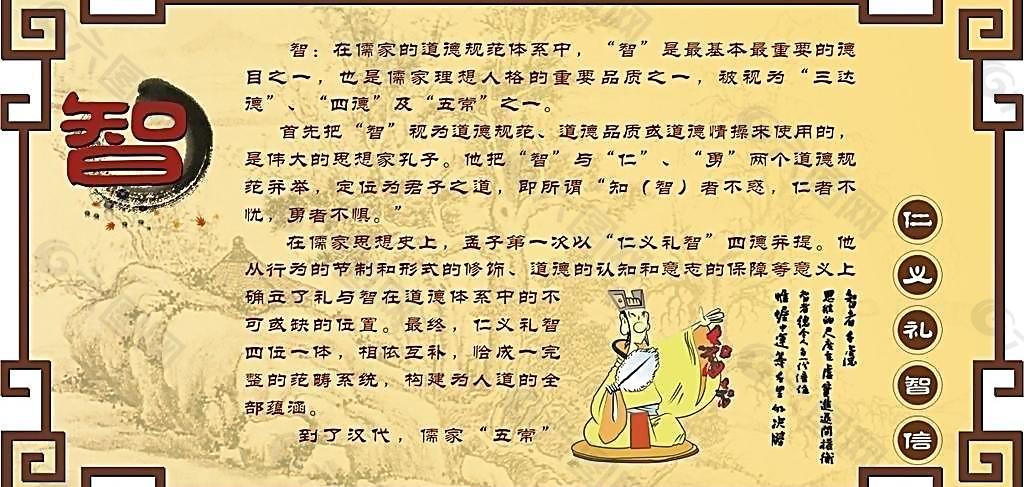 智
智：在儒家的道德规范体系中，“智”是最基本最重要的德
目之一，也是儒家理想人格的重要品质之一，被视为“三达
德”、“四德”及“五常”之一。
首先把“智”视为道德规范、道德品质或道德情操来使用的，
是伟大的思想家孔子。他把“智”与“仁”、“勇”两个道德规
范并举，定位为君子之道，即所谓“知（智）者不惑，仁者不
忧，勇者不惧。”
在儒家思想史上，孟子第一次以“仁义礼智”四德并提。他
从行为的节制和形式的修饰、道德的认知和意志的保障等意义上
确立了礼与智在道德体系中的不
可或缺的位置。最终，仁义礼智
四位一体，相依互补，恰成一完
整的范畴系统，构建为人道的全
部蕴涵。
到了汉代，儒家“五常”
仁
义
礼
智
信